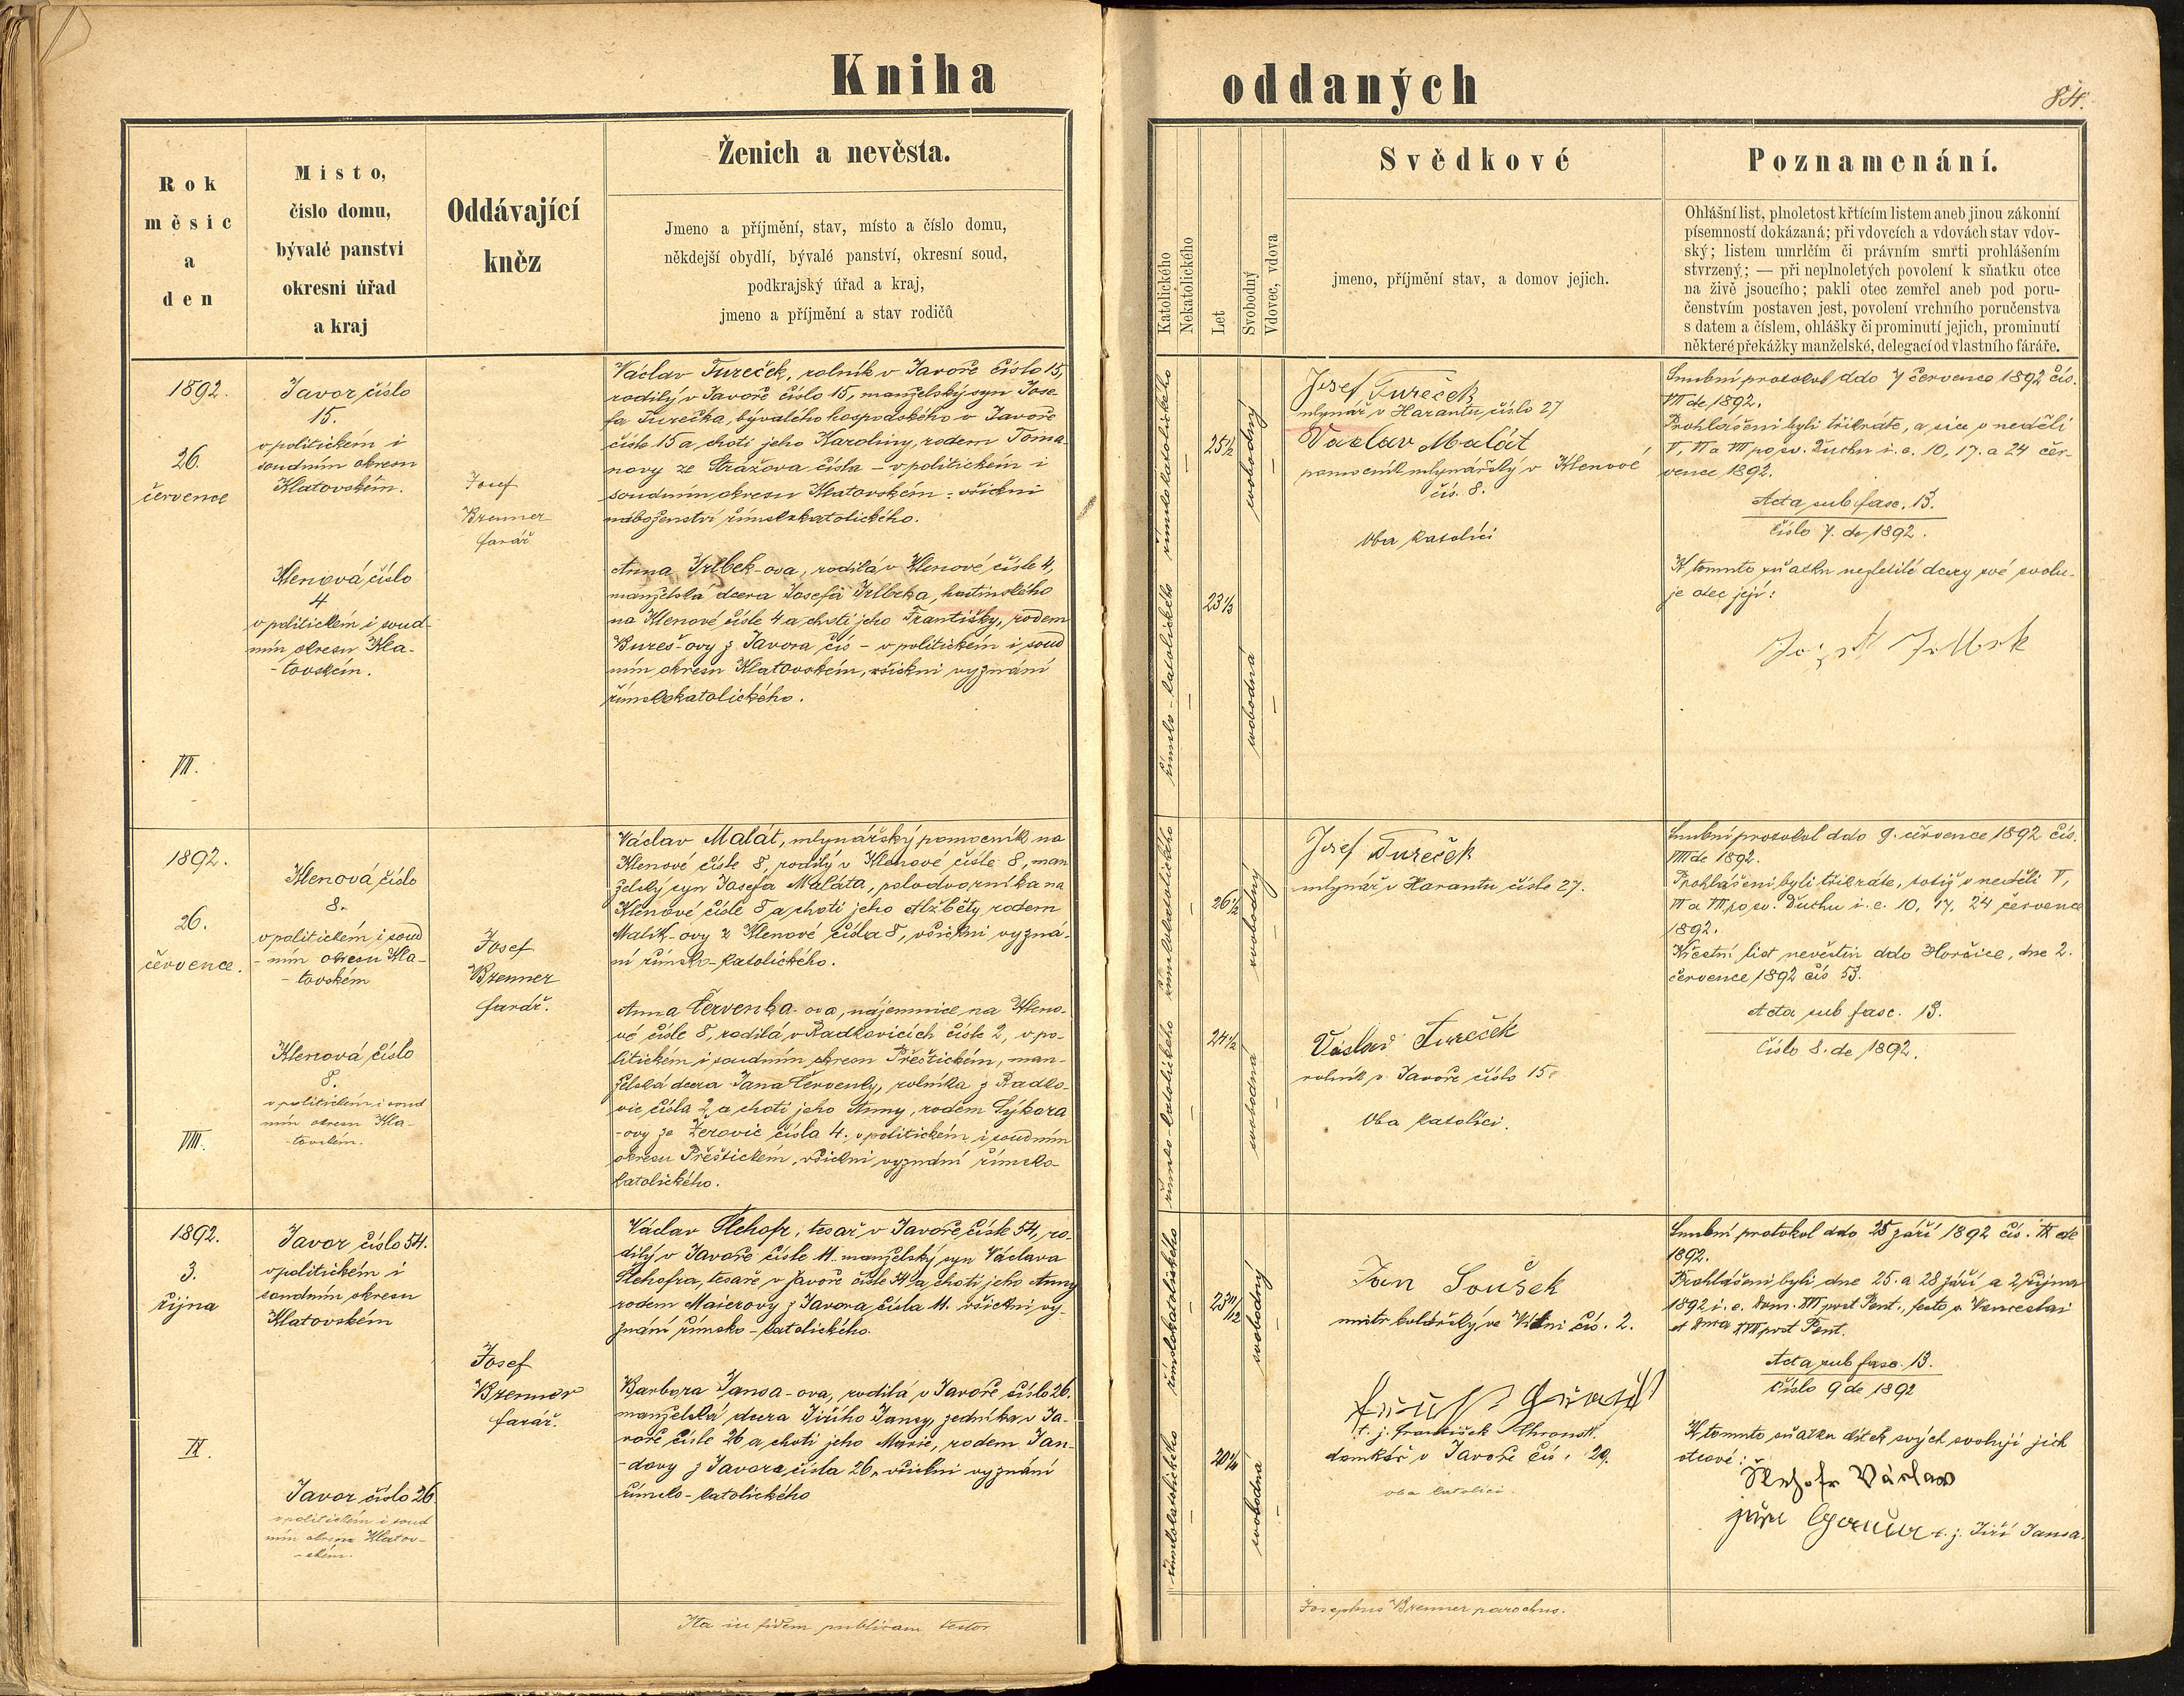 Kniha
oddaných
84.
Rok
měsíc
a
den
Místo,
číslo domu,
bývalé panství
okresní úřad
a kraj
Oddávající
kněz
Ženich a nevěsta.
Jmeno a příjmění, stav, místo a číslo domu,
někdejší obydlí, bývalé panství, okresní soud,
podkrajský úřad a kraj,
jmeno a příjmění a stav rodičů
Katolického
Nekatolického
Let
Svobodný
Vdovec, vdova
Svědkové
jmeno, příjmění stav, a domov jejich.
Poznamenání.
Ohlášní list, plnoletost křtícím listem aneb jinou zákonní
písemností dokázaná; při vdovcích a vdovách stav vdov-
ský; listem umrlčím či právním smrti prohlášením
stvrzený; — při neplnoletých povolení k sňatku otce
na živě jsoucího; pakli otec zemřel aneb pod poru-
čenstvím postaven jest, povolení vrchního poručenstva
s datem a číslem, ohlášky či prominutí jejich, prominutí
některé překážky manželské, delegací od vlastního fáráře.
1892.
26.
července
VII.
Javor číslo
15.
v politickém i
soudním okresu
Klatovském.
Klenová číslo
4
v politickém i soud-
ním okresu Kla-
-tovském.
Josef
Brenner
farář
Václav Tureček, rolník v Javoře číslo 15,
rodilý v Javoře číslo 15, manželský syn Jose-
fa Turečka, bývalého hospodského v Javoře
čísle 15 a choti jeho Karoliny, rodem Toma-
novy ze Strážova čísla – v politickém i
soudním okresu Klatovském: všickni
náboženství římskokatolického.
Anna Irlbek-ova, rodilá v Klenové čísle 4,
manželská dcera Josefa Irlbeka, hostinského
na Klenové čísle 4 a choti jeho Františky, rodem
Bureš-ovy z Javora čís – v politickém i soud
ním okresu Klatovském, všickni vyznání
římskokatolického.
římskokatolického
–
25 1/2
svobodný
–
římsko-katolického
–
23 1/2
svobodná
–
Josef Tureček
mlynář v Harantu číslo 27
Vaclav Malát
pomocník mlynářský v Klenové
čís. 8.
Oba katolíci
Snubní protokol ddo 7 července 1892 čís.
VII de 1892.
Prohlášeni byli třikráte, a sice v neděli
V, VI a VII po sv. Duchu i. e. 10, 17. a 24 čer-
vence 1892.
Acta sub fasc. 13.
Číslo 7. de 1892.
K tomuto sňatku nezletilé dcery své svolu-
je otec její:
1892.
26.
července.
VIII.
Klenová číslo
8.
v politickém i soud
-ním okresu Kla-
-tovském
Klenová číslo
8.
v politickém i soud
ním okresu Kla-
tovském.
Josef
Brenner
farář.
Václav Malát, mlynářský pomocník na
Klenové čísle 8, rodilý v Klenové čísle 8, man
želský syn Josefa Maláta, polodvorníka na
Klenové čísle 8 a choti jeho Alžběty rodem
Malík-ovy z Klenové čísla 8, všickni vyzná-
ní římsko-katolického.
Anna Červenka-ova, nájemnice na Kleno-
vé čísle 8, rodilá v Radkovicích čísle 2, v po-
litickém i soudním okresu Přeštickém, man-
želská dcera Jana Červenky, rolníka z Radko-
vic čísla 2 a choti jeho Anny, rodem Sýkora
-ovy ze Žerovic čísla 4. v politickém i soudním
okresu Přeštickém, všickni vyznání římsko-
katolického.
římskokatolického
–
26 1/2
svobodný
–
římsko-katolického
–
24 1/2
svobodná
–
Josef Tureček
mlynář v Harantu čísle 27.
Václav Tureček
rolník v Javoře číslo 15.
Oba katolíci.
Snubní protokol ddo 9. července 1892 čís.
VIII de 1892.
Prohlášeni byli třikráte, totiž v neděli V,
VI a VII po sv. Duchu i. e. 10, 17, 24 července
1892.
Křestní list nevěstin ddo Horšice, dne 2.
července 1892 čís 53.
Acta sub fasc. 13.
Číslo 8. de 1892.
1892.
3.
října
IX.
Javor číslo 54.
v politickém i
soudním okresu
Klatovském
Javor číslo 26
v politickém i soud
ním okresu Klatov-
-ském.
Josef
Brenner
farář.
Václav Šlehofr, tesař v Javoře čísle 54, ro-
dilý v Javoře čísle 11. manželský syn Václava
Šlehofra, tesaře v Javoře čísle 54 a choti jeho Anny
rodem Maierovy z Javora čísla 11. všickni vy-
znání římsko-katolického.
Barbora Jansa-ova, rodilá v Javoře číslo 26.
manželská dcera Jiřího Jansy, zedníka v Ja-
voře čísle 26 a choti jeho Marie, rodem Jan-
-dovy z Javora čísla 26, všickni vyznání
římsko-katolického
římskokatolického
–
23 11/12
svobodný
–
římskokatolického
–
20 1/4
svobodná
–
Jan Soušek
mistr kolářský ve čís. 2.
t. j. František
domkář v Javoře čís. 29.
oba katolíci.
Snubní protokol ddo 25 září 1892 čís. IX de
1892.
Prohlášeni byli dne 25. a 28 září a 2 října
1892 i. e. Dom. XVI post Pent., festo s. Venceslai
et Dnca XVII post Pent.
Acta sub fasc. 13.
Číslo 9 de 1892
K tomuto sňatku dítek svých svolují jich
otcové:
Šlehofr Václav
t. j. Jiří Jansa.
Ita in fidem publicam testor
Josephus Brenner parochus.